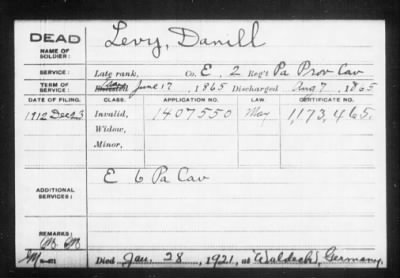 DEAD
NAME OF SOLDIER:
Levy, Danill
SERVICE:
Late rank, Co. E. 2 Reg't Pa Prov Cav
TERM OF SERVICE:
June 17, 1865 Discharged Aug 7, 1865
DATE OF FILING. CLASS. APPLICATION NO. LAW. CERTIFICATE NO.
1912 Dec 23 Invalid, 1407550 May 1,173,465.
Widow,
Minor,
ADDITIONAL SERVICES:
E 6 Pa Cav
REMARKS:
Died Jan. 28, 1921, at Waldeck, Germany.